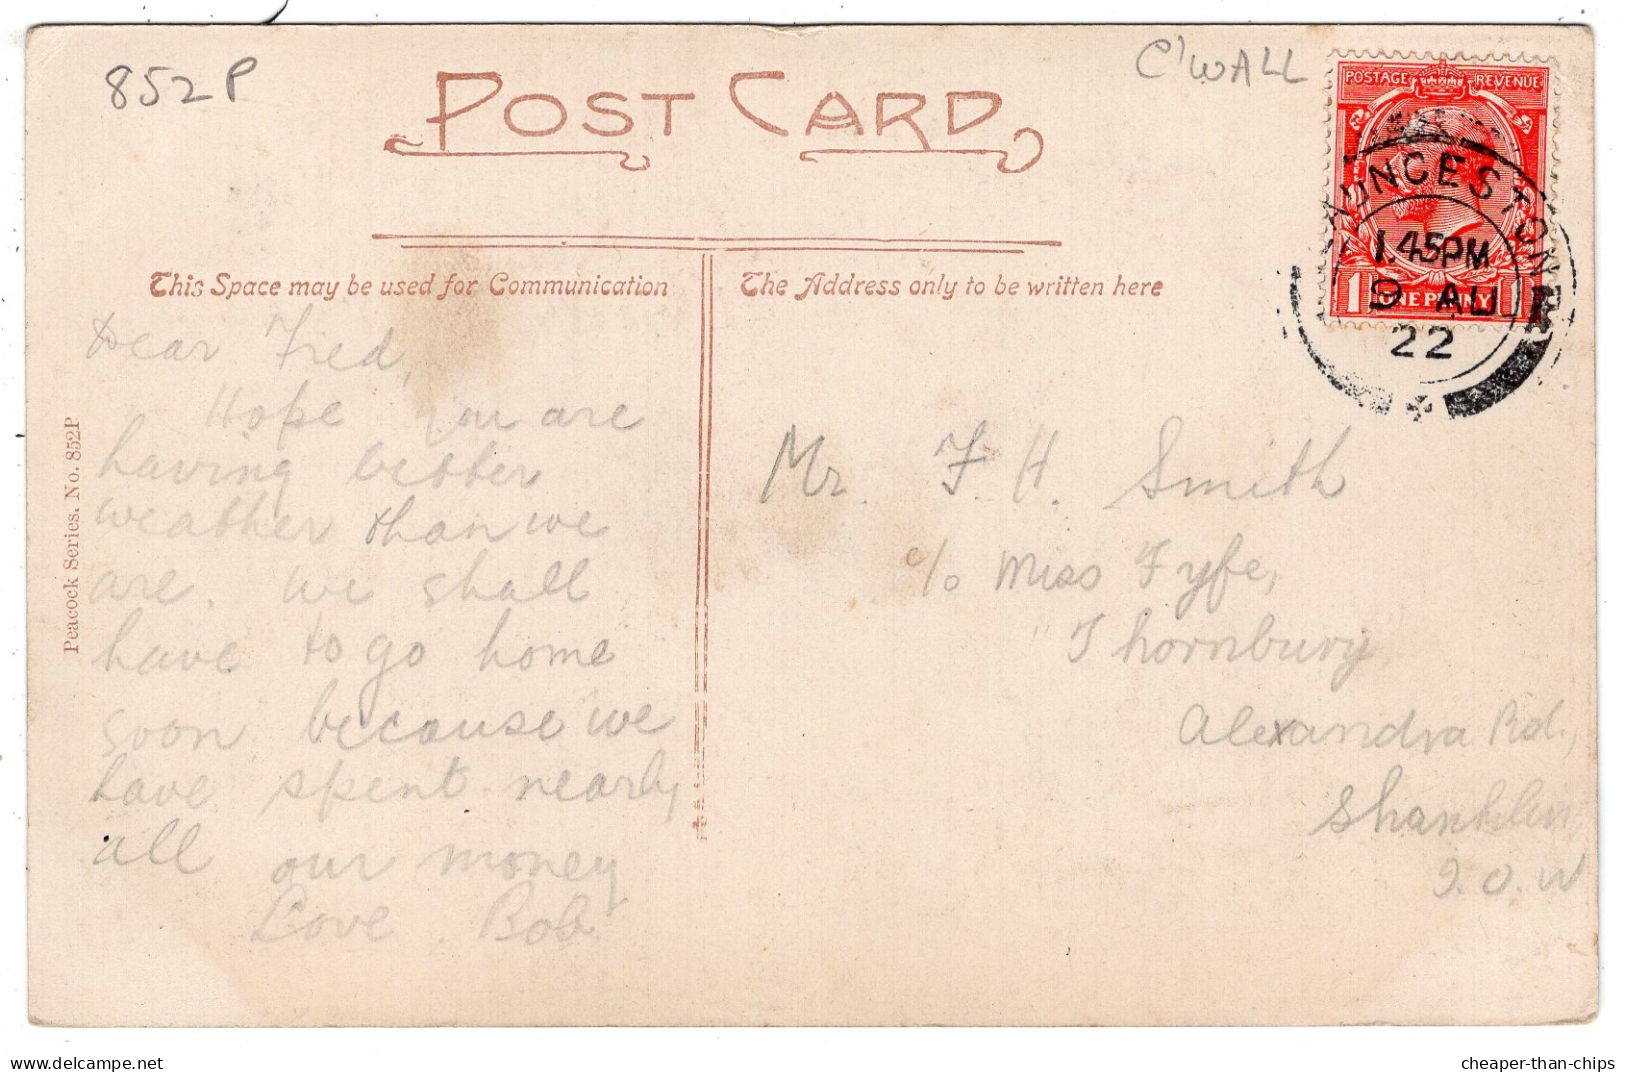 852P
C'WALL
POST CARD
POSTAGE REVENUE
LAUNCESTON
1.45PM
9 AU
22
1 ONE PENNY 1
This Space may be used for Communication
The Address only to be written here
Peacock Series. No. 852P
Dear Fred,
Hope you are
having better
weather than we
are. We shall
have to go home
soon because we
have spent nearly
all our money
Love, Bob
Mr. F. H. Smith
c/o Miss Fyfe,
"Thornbury
Alexandra Rd.,
Shanklin
I.O.W
delcampe.net
cheaper-than-chips